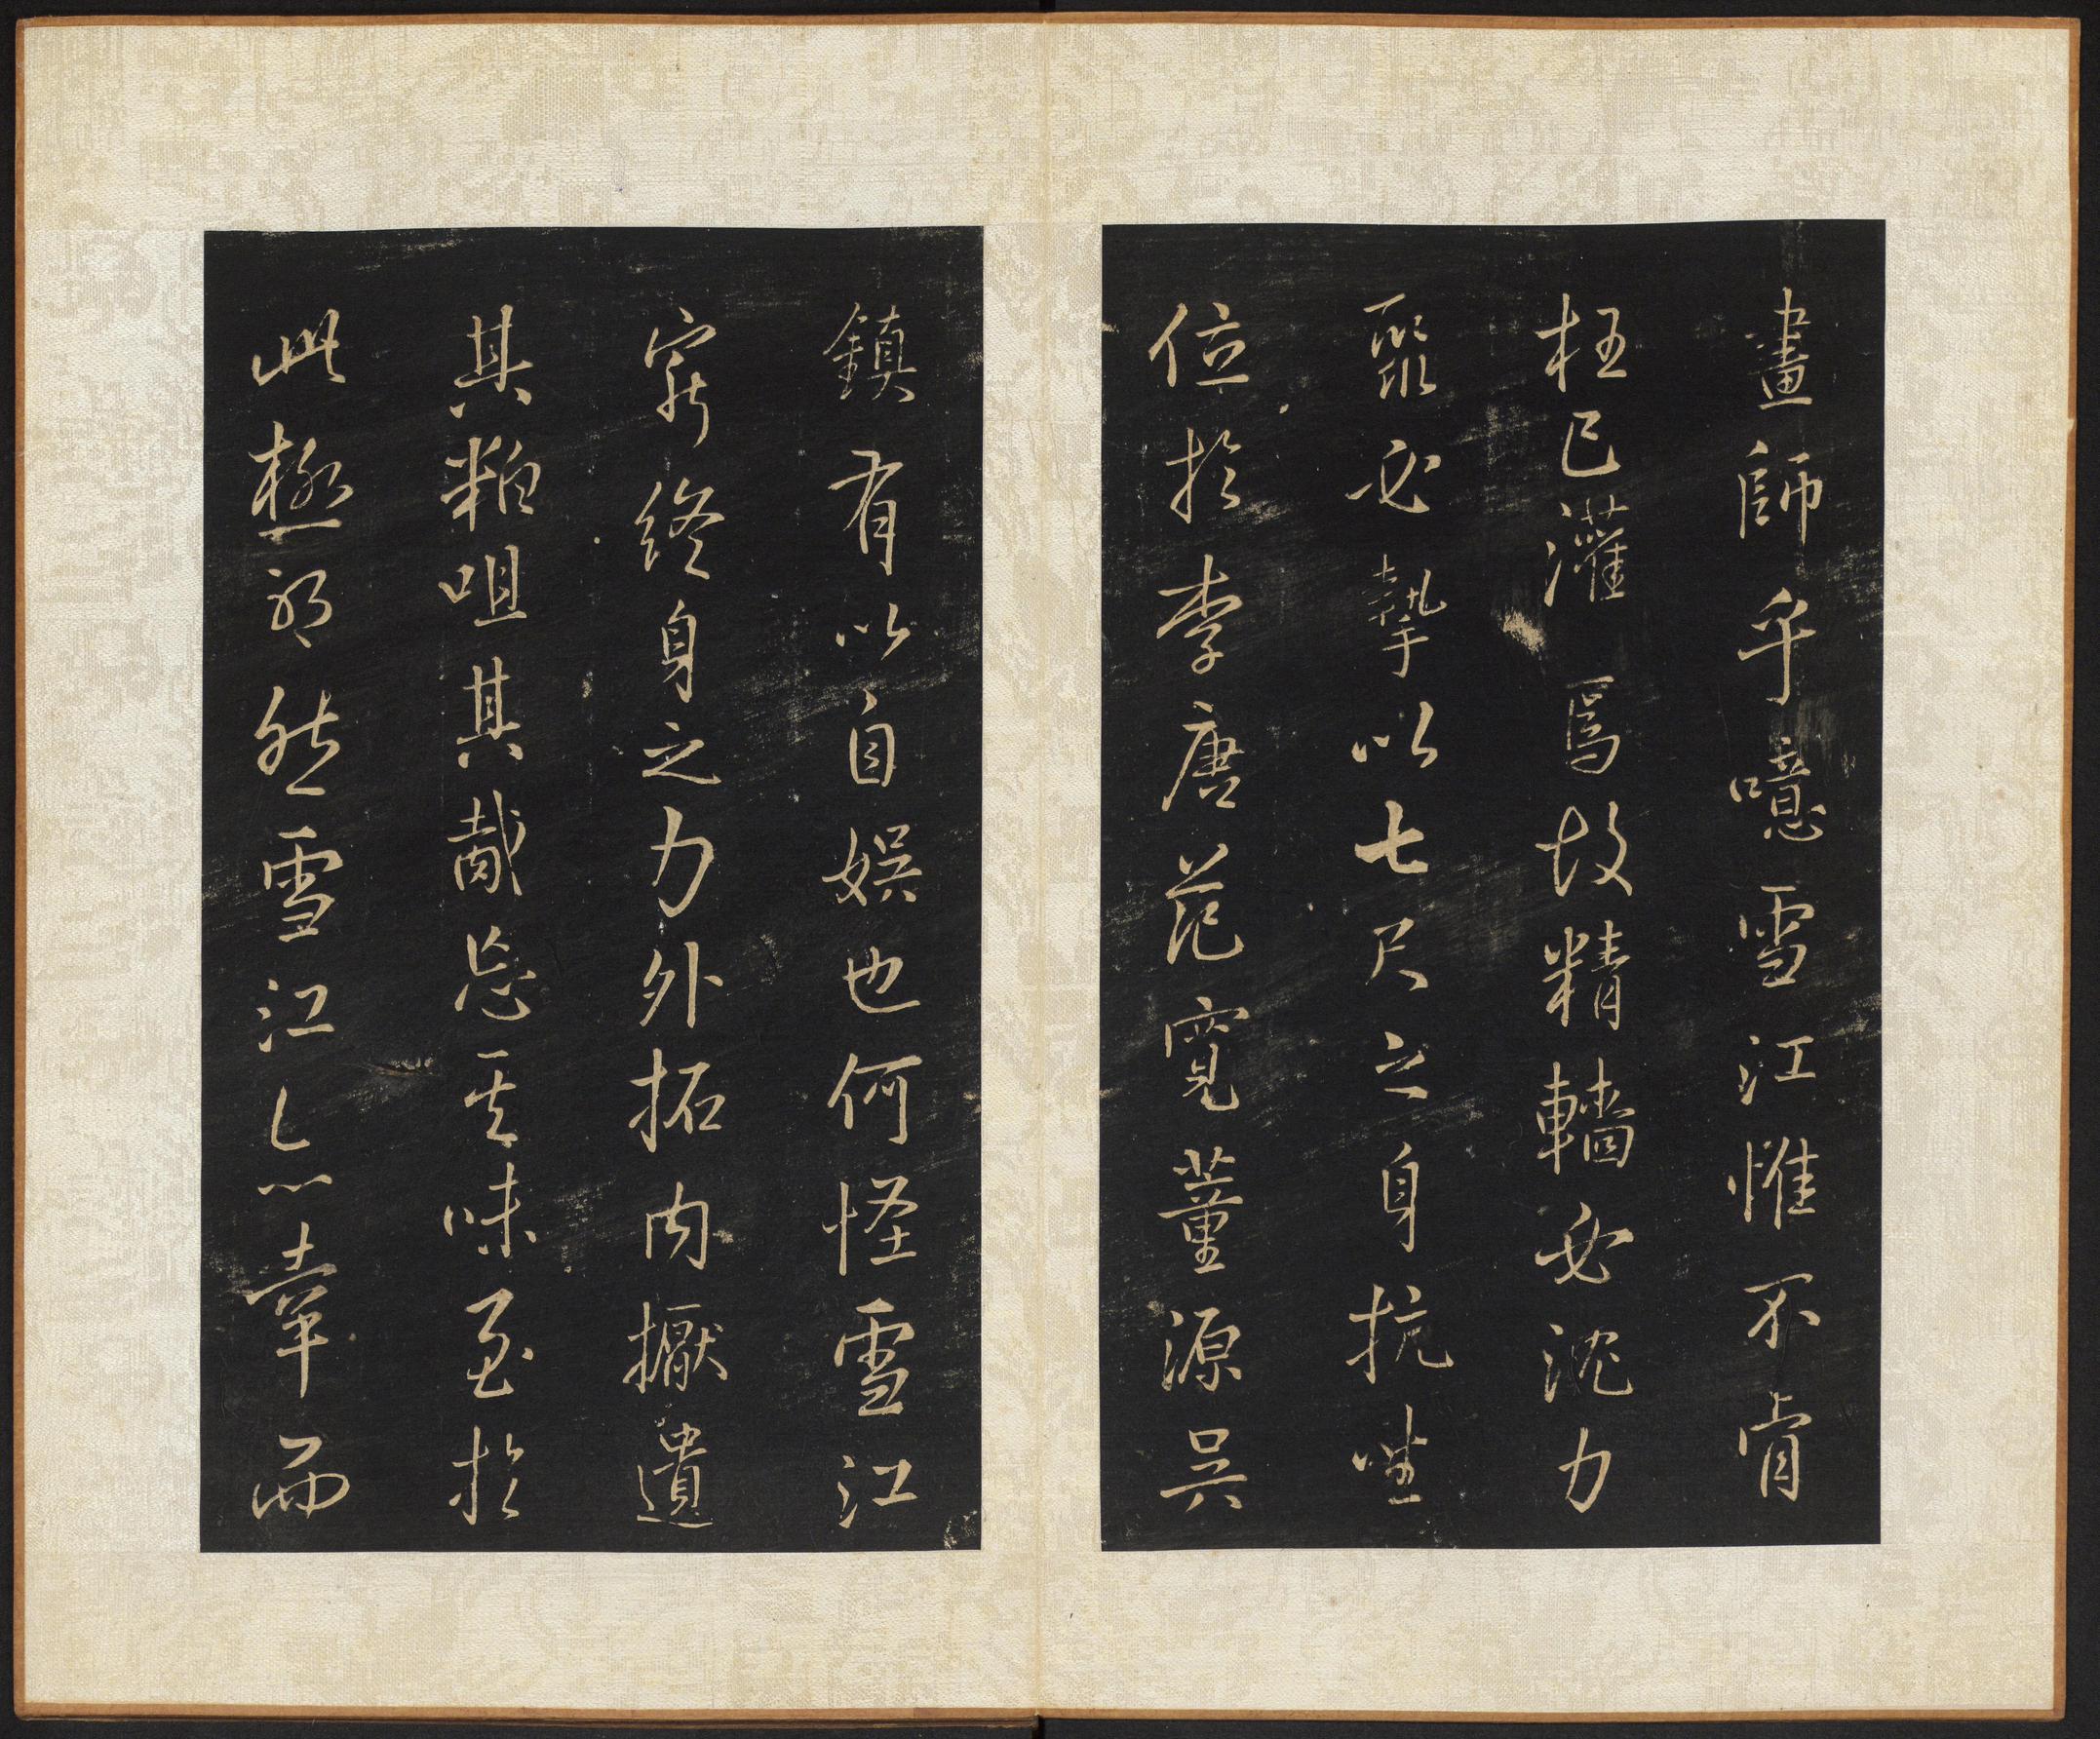 畫師乎噫雪江惟不肯
枉己灌焉故精轖必沈力
聚必摯以七尺之身抗坐
位於李唐范寬董源吳
鎮有以自娛也何怪雪江
窮終身之力外拓內擫遺
其粕咀其胾忘其味至於
此極耶然雪江亡心辜而